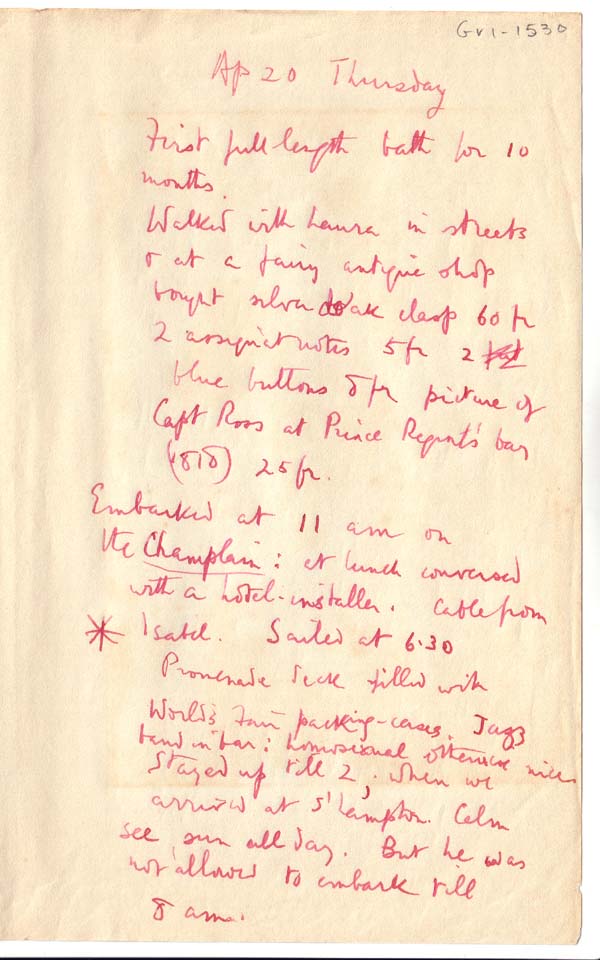 Gv1-1530
Ap 20 Thursday
First full-length bath for 10
months.
Walked with Laura in streets
& at a fairy antique shop
bought silver cloak clasp 60 fr
2 assignat notes 5 fr 2
blue buttons 8 fr picture of
Capt Ross at Prince Regent's bay
(1818) 25 fr.
Embarked at 11 am on
the Champlain: at lunch conversed
with a hotel-installer. Cable from
* Isabel. Sailed at 6.30
Promenade deck filled with
World's Fair packing-cases. Jazz
band in bar: homosexual otherwise nice
Stayed up till 2, when we
arrived at S'hampton. Calm
see, sun all day. But he was
not allowed to embark till
8 am.